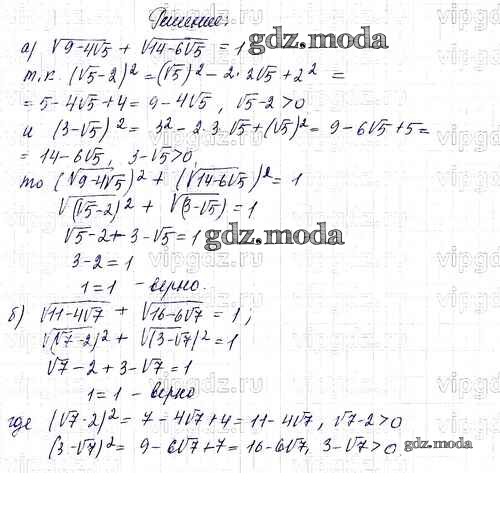 Решение:
а) √9-4√5 + √14-6√5 = 1
т.к. (√5-2)² = (√5)² - 2·2√5 + 2² =
= 5-4√5+4 = 9-4√5, √5-2>0
и (3-√5)² = 3² - 2·3·√5 + (√5)² = 9-6√5+5 =
= 14-6√5, 3-√5>0,
то (√9-4√5)² + (√14-6√5)² = 1
√(√5-2)² + √(3-√5) = 1
√5-2+3-√5 = 1
gdz.moda
3-2 = 1
1=1 - верно.
б) √11-4√7 + √16-6√7 = 1;
√(√7-2)² + √(3-√7)² = 1
√7-2+3-√7 = 1
1=1 - верно
где (√7-2)² = 7-4√7+4 = 11-4√7, √7-2>0
(3-√7)² = 9-6√7+7 = 16-6√7, 3-√7>0.
gdz.moda
gdz.moda
vipgdz.ru